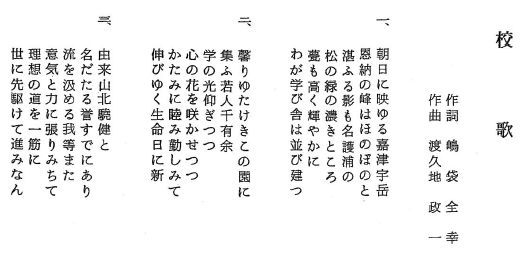 校歌
作詞 嶋袋全幸
作曲 渡久地政一
一、
朝日に映ゆる嘉津宇岳
恩納の峰はほのぼのと
湛ふる影も名護浦の
松の緑の濃きところ
甍も高く輝やかに
わが学び舎は並び建つ
二、
馨りゆたけきこの園に
集ふ若人千有余
学の光仰ぎつつ
心の花を咲かせつつ
かたみに睦み勤しみて
伸びゆく生命日に新
三、
由来山北驍健と
名だたる誉すでにあり
流を汲める我等また
意気と力に張りみちて
理想の道を一筋に
世に先駆けて進みなん